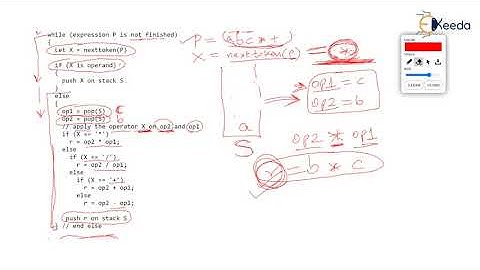 while (expression P is not finished)
{
let X = nexttoken(P)
if (X is operand)
{
push X on stack S
}
else
{
op1 = pop(S) c
op2 = pop(S) b
// apply the operator X on op2 and op1
if (X == '*')
r = op2 * op1;
else
if (X == '/')
r = op2 / op1;
else
if (X == '+')
r = op2 + op1;
else
r = op2 - op1;
push r on stack S
} // end else
P = abc*+
X = nexttoken(P) = *
op1 = c
op2 = b
a
S
op2 * op1
r = b * c
Keeda